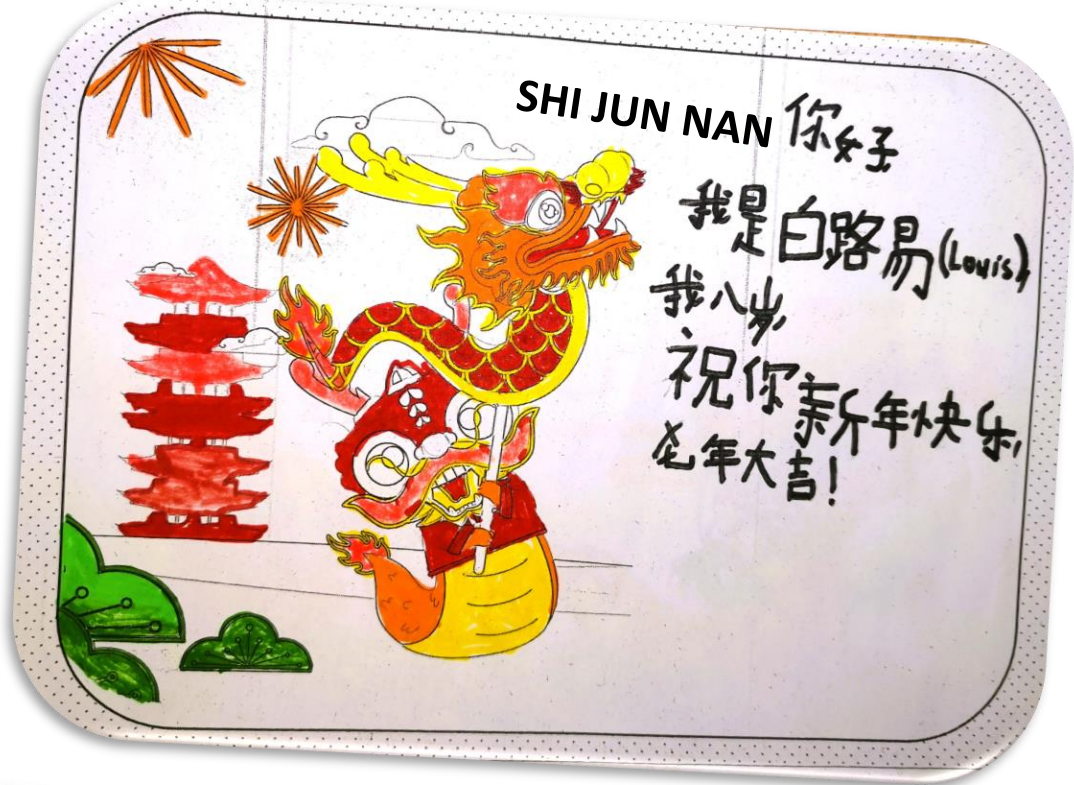 SHI JUN NAN 你好
我是白路易(Louis)
我八岁,
祝你新年快乐,
龙年大吉!